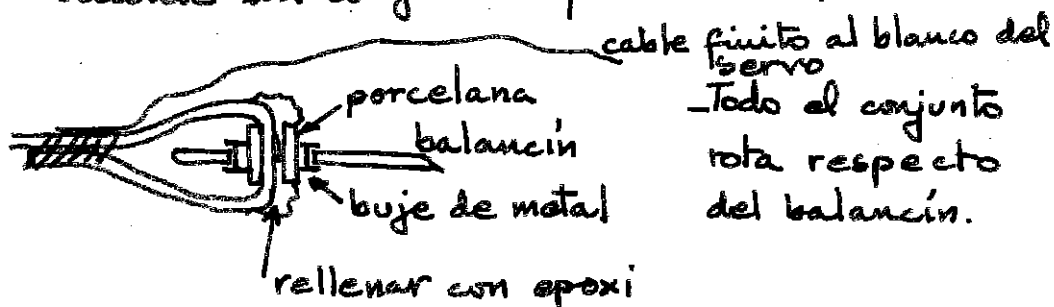 cable finito al blanco del
servo
porcelana
balancín
buje de metal
rellenar con epoxi
-Todo el conjunto
rota respecto
del balancín.